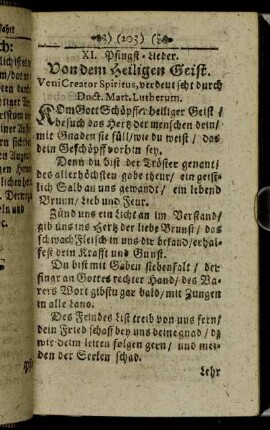 (203)
XI. Pfingst-Lieder.
Von dem Heiligen Geist.
Veni Creator Spiritus, verdeutscht durch
Doct. Mart. Lutherum.
KOm Gott Schöpffer heiliger Geist /
besuch das Hertz der menschen dein /
mit Gnaden sie füll / wie du weist / das
dein Geschöpff vorhin sey.
Denn du bist der Tröster genant /
des allerhöchsten gabe theur / ein geist-
lich Salb an uns gewandt / ein lebend
Brunn / Lieb und Feur.
Zünd uns ein Licht an im Verstand /
gib uns ins Hertz der liebe Brunst / das
schwach Fleisch in uns dir bekand / erhal-
fest dein Krafft und Gunst.
Du bist mit Gaben siebenfalt / der
finger an Gottes rechter Hand / des Va-
ters Wort gibstu gar bald / mit Zungen
in alle Land.
Des Feindes List treib von uns fern /
dein Fried schaff bey uns deine gnad / dz
wir deim leiten folgen gern / und mei-
den der Seelen schad.
Lehr